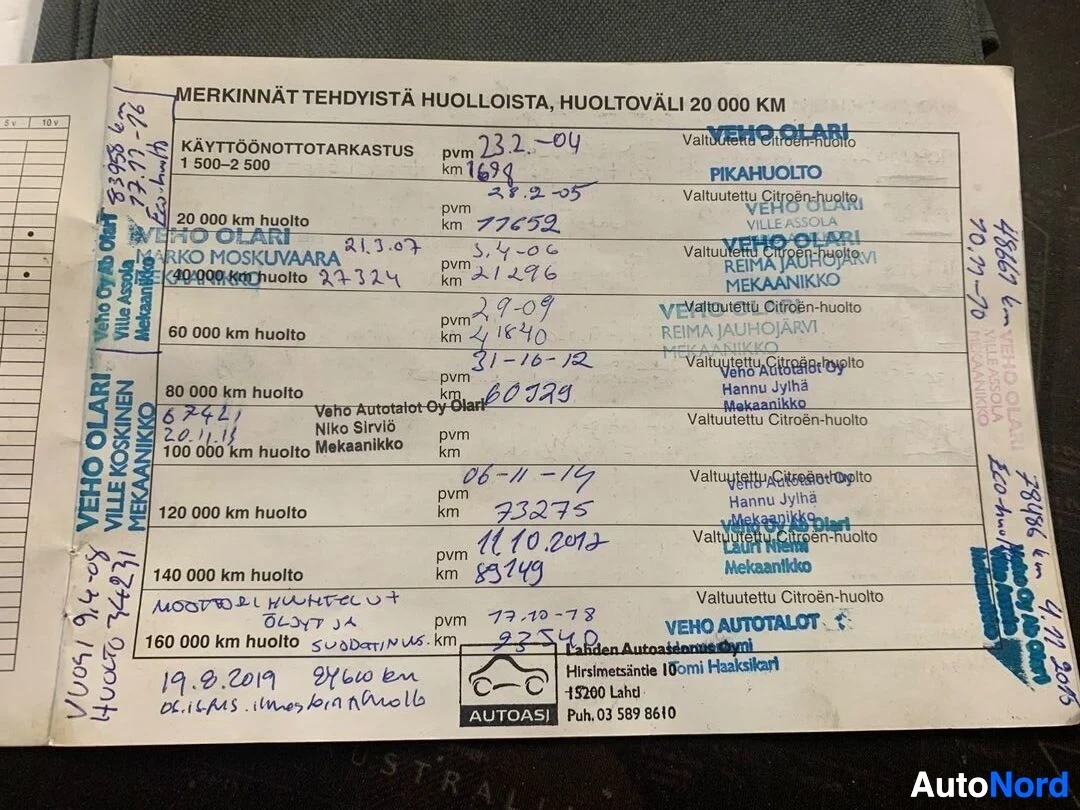 5 v 10 v
MERKINNÄT TEHDYISTÄ HUOLLOISTA, HUOLTOVÄLI 20 000 KM
KÄYTTÖÖNOTTOTARKASTUS
1 500–2 500
pvm 23.2.-04
km 1698
VEHO OLARI
Valtuutettu Citroën-huolto
PIKAHUOLTO
20 000 km huolto
pvm 28.2-05
km 11652
Valtuutettu Citroën-huolto
VEHO OLARI
VILLE ASSOLA
VEHO OLARI
MARKO MOSKUVAARA
MEKAANIKKO
21.3.07
40 000 km huolto 27324
pvm 3.4-06
km 21296
Valtuutettu Citroën-huolto
VEHO OLARI
REIMA JAUHOJÄRVI
MEKAANIKKO
60 000 km huolto
pvm 29-09
km 41840
Valtuutettu Citroën-huolto
VEHO OLARI
REIMA JAUHOJÄRVI
MEKAANIKKO
80 000 km huolto
pvm 31-10-12
km 60929
Valtuutettu Citroën-huolto
Veho Autotalot Oy
Hannu Jylhä
Mekaanikko
67421
20.11.13
100 000 km huolto
Veho Autotalot Oy Olari
Niko Sirviö
Mekaanikko
pvm
km
Valtuutettu Citroën-huolto
120 000 km huolto
pvm 06-11-14
km 73275
Valtuutettu Citroën-huolto
Veho Autotalot Oy
Hannu Jylhä
Mekaanikko
140 000 km huolto
pvm 11.10.2017
km 89149
Valtuutettu Citroën-huolto
Veho Oy Ab Olari
Lauri Niemi
Mekaanikko
MOOTTORI HUUHTELUT
ÖLJYT JA
160 000 km huolto SUODATINUS.
pvm 17.10-18
km 93540
Valtuutettu Citroën-huolto
VEHO AUTOTALOT
Tomi Haaksikari
19.8.2019
AUTOASI
Lahden Autoasennus Oy
Hirsimetsäntie 10
15200 Lahti
Puh. 03 589 8610
83958 km
17.11-16
Eco-huolto
Veho Oy Ab Olari
Ville Assola
Mekaanikko
VEHO OLARI
VILLE KOSKINEN
MEKAANIKKO
VUOSI 9.4-08
HUOLTO 34231
48667 km
10.11-10
VEHO OLARI
VILLE ASSOLA
MEKAANIKKO
78486 km 4.11 2015
Eco-huolto
Veho Oy Ab Olari
Ville Assola
Mekaanikko
AutoNord